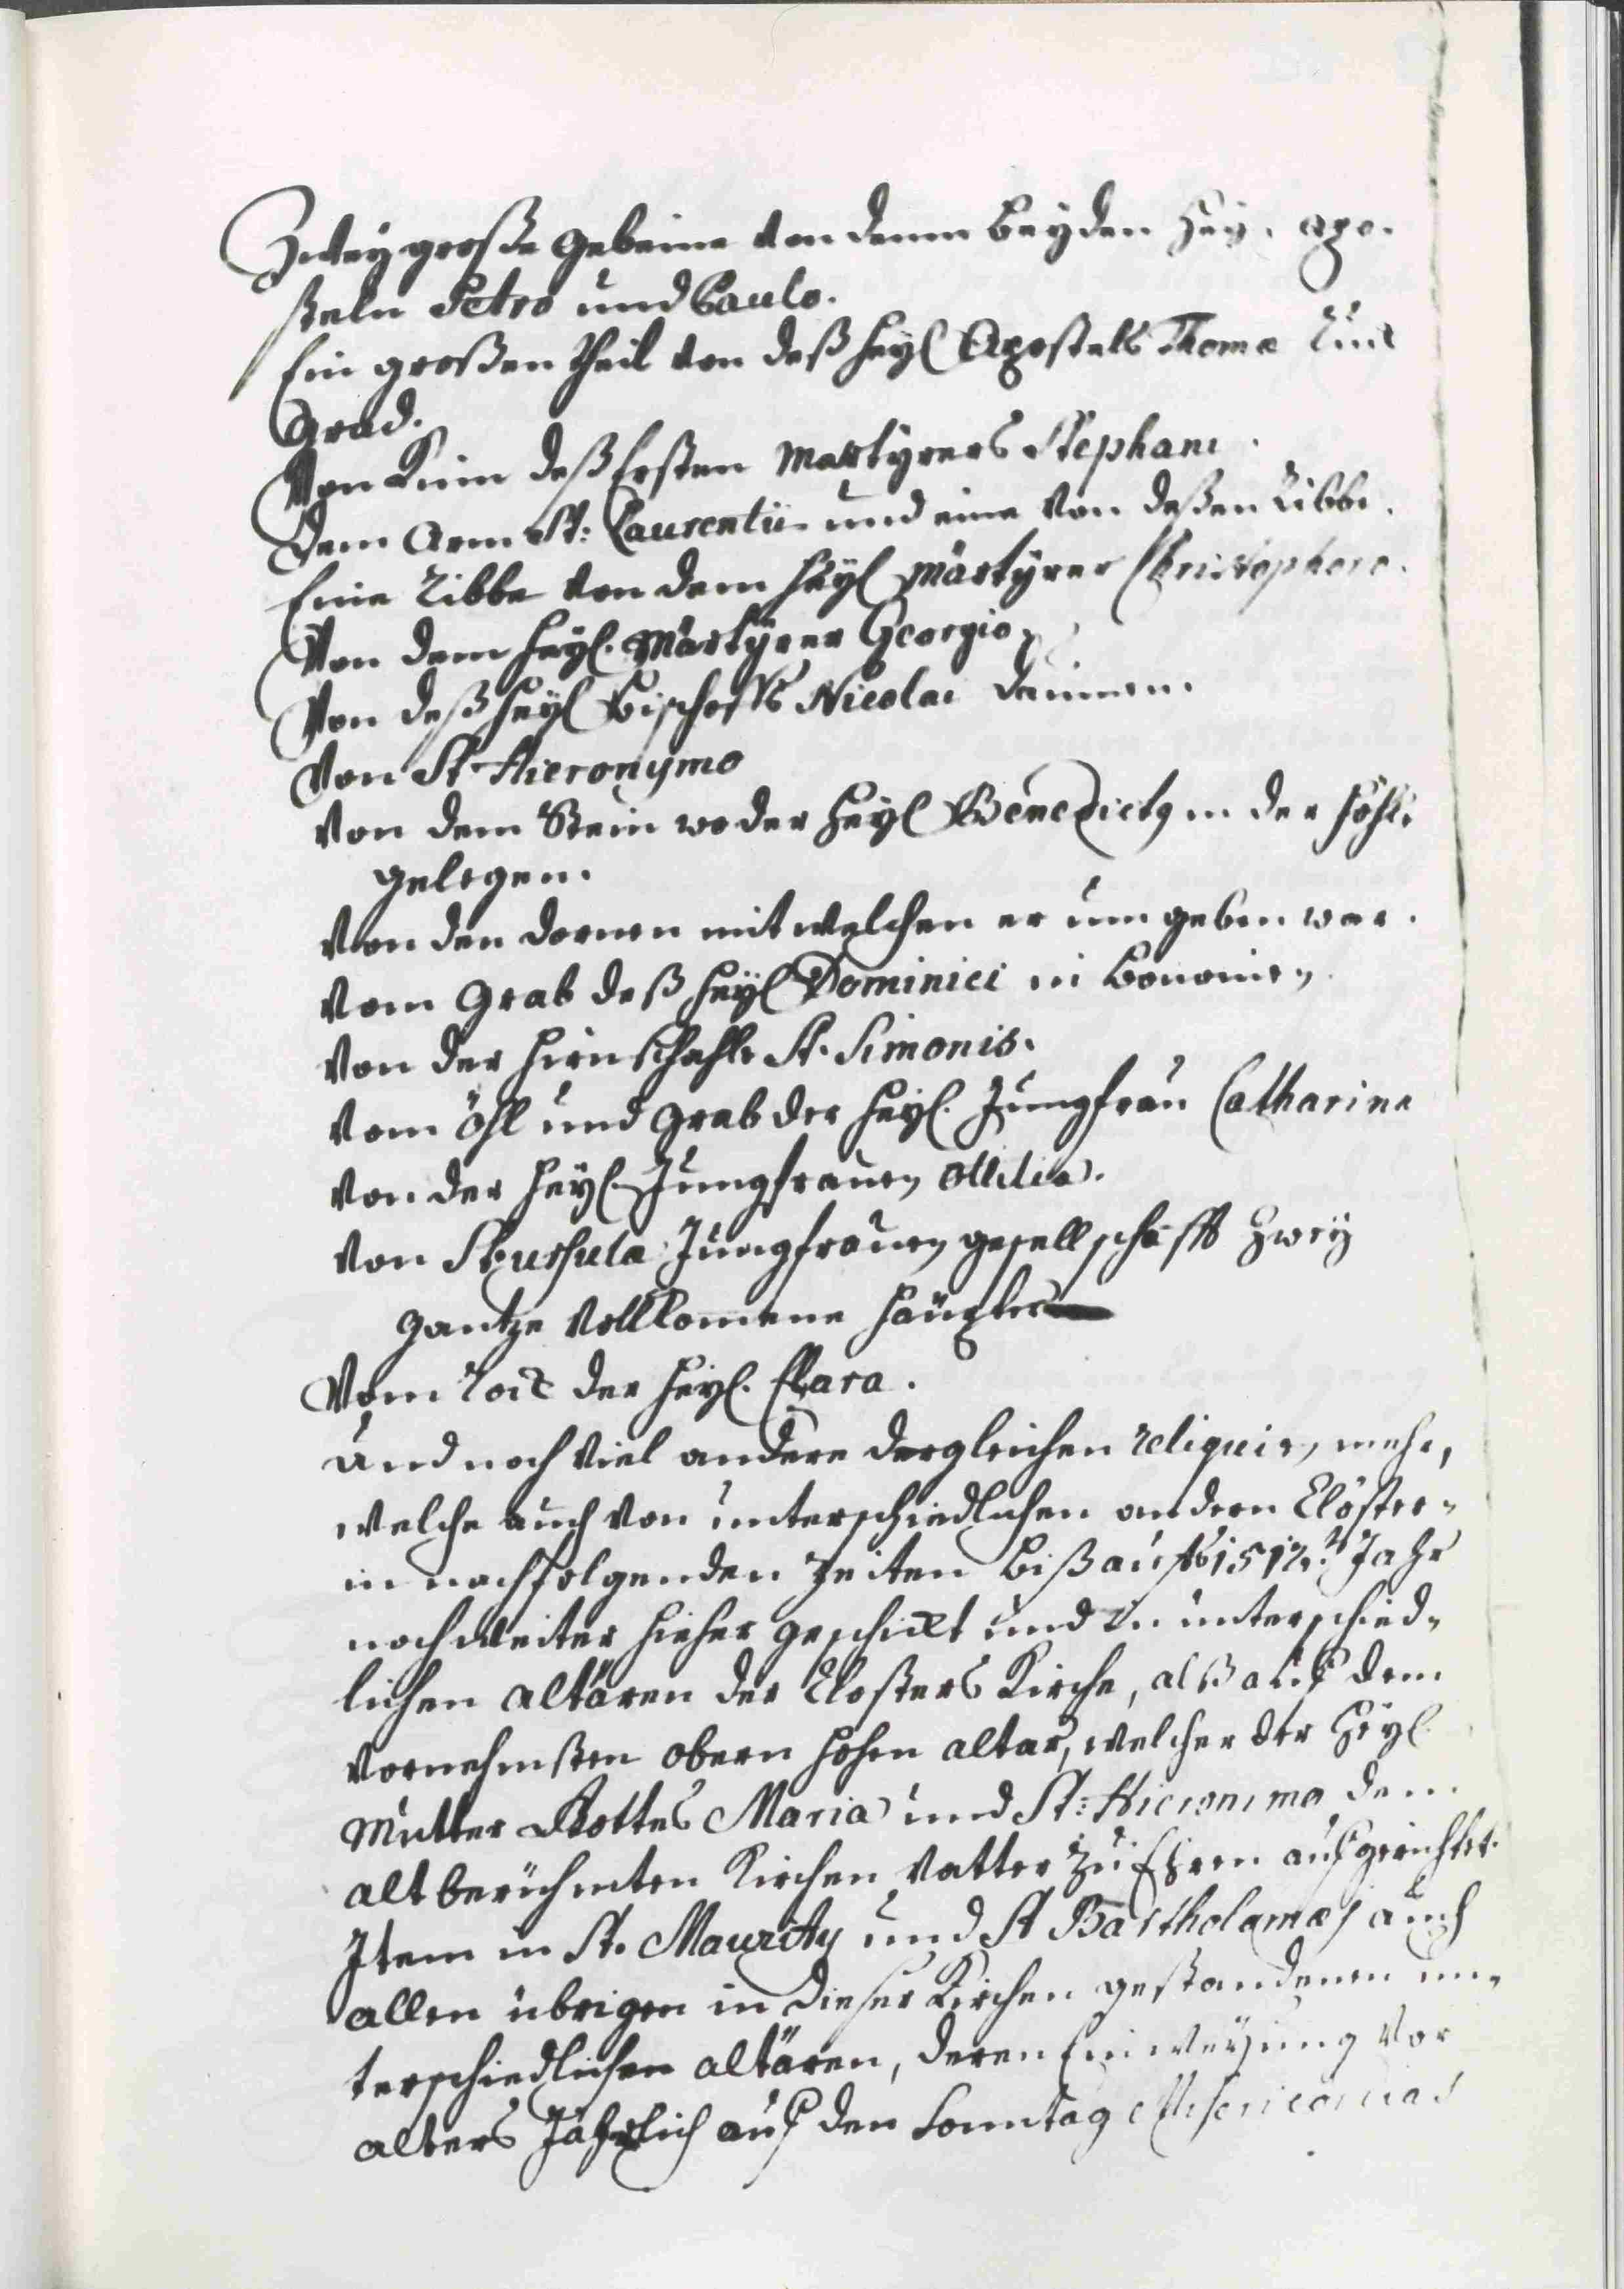 Zwey große Gebeine von denen beyden Hey. Apo-
steln Petro und Paulo.
Ein großen theil von deß Heyl Apostels Thomæ
Grad.
Von Kinn deß Ersten Martyrers Stephani.
Dem Arm St: Laurentii und eine von deßen Ribbe.
Eine Ribbe von dem Heyl Märtyrer Christophoro.
Von dem Heyl. Märtyrer Georgio,
Von deß Heyl Bischoffs Nicolai Daumen.
Von St Hieronymo
Von dem Stein wo der Heyl Benedictq in der Höhle
gelegen.
Von den dornen mit welchen er um geben war.
Vom Grab deß Heyl Dominici in Bononien
Von der Hirnschahle St. Simonis.
Vom Öhl und Grab der Heyl. Jungfrau Catharina
Von der Heyl. Jungfrauen Ottilia.
Von St Ursula Jungfrauen gesellschafft zwey
gantze vollkomene Häupter
Vom Rock der Heyl. Clara.
Und noch viel andere dergleichen reliquien mehr,
welche auch von unterschiedlichen andern Clöster-
in nachfolgenden Zeiten biß aufs 1512.t Jahr
noch weiter hieher geschickt und in unterschied-
lichen altären der Closters Kirche, alß auf dem
vornehmsten obern hohen altar, welcher der Heyl.
Mutter Gottes Maria und St: Hieronimo dem
altberühmten Kirchen Vatter zu Ehren aufgerichtet.
Item in St. Maurity und St Bartholamæj auch
allen übrigen in dieser Kirchen gestandenen un-
terschiedlichen altären, deren Einweyhung vor
alters Jährlich auf den Sonntag Misericordias